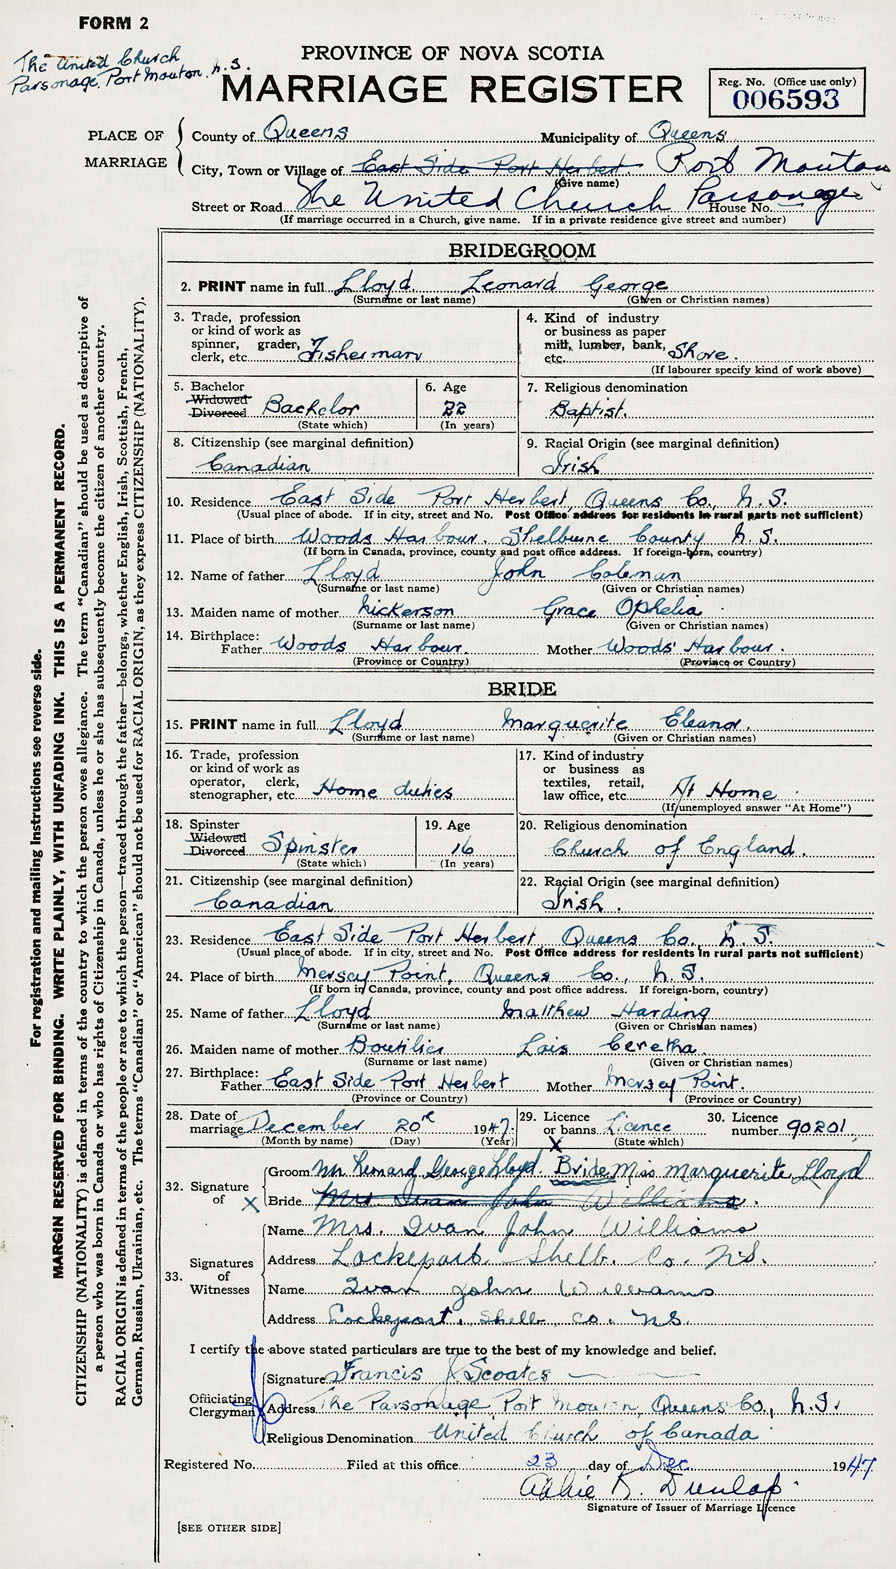 FORM 2
The United Church
Parsonage, Port Mouton, N.S.
PROVINCE OF NOVA SCOTIA
MARRIAGE REGISTER
Reg. No. (Office use only)
006593
PLACE OF MARRIAGE
County of Queens Municipality of Queens
City, Town or Village of East Side Port Herbert. Port Mouton
(Give name)
Street or Road The United Church Parsonage House No.
(If marriage occurred in a Church, give name. If in a private residence give street and number)
BRIDEGROOM
2. PRINT name in full Lloyd Leonard George
(Surname or last name) (Given or Christian names)
3. Trade, profession or kind of work as spinner, grader, clerk, etc. Fisherman
4. Kind of industry or business as paper mill, lumber, bank, etc. Shore.
(If labourer specify kind of work above)
5. Bachelor Widowed Divorced Bachelor
(State which)
6. Age 22
(In years)
7. Religious denomination
Baptist.
8. Citizenship (see marginal definition)
Canadian
9. Racial Origin (see marginal definition)
Irish
10. Residence East Side Port Herbert, Queens Co., N.S.
(Usual place of abode. If in city, street and No. Post Office address for residents in rural parts not sufficient)
11. Place of birth Woods Harbour. Shelburne County N.S.
(If born in Canada, province, county and post office address. If foreign-born, country)
12. Name of father Lloyd John Coleman
(Surname or last name) (Given or Christian names)
13. Maiden name of mother Nickerson Grace Ophelia
(Surname or last name) (Given or Christian names)
14. Birthplace:
Father Woods Harbour. Mother Woods' Harbour.
(Province or Country) (Province or Country)
BRIDE
15. PRINT name in full Lloyd Marguerite Eleanor.
(Surname or last name) (Given or Christian names)
16. Trade, profession or kind of work as operator, clerk, stenographer, etc. Home duties
17. Kind of industry or business as textiles, retail, law office, etc. At Home
(If unemployed answer "At Home")
18. Spinster Widowed Divorced Spinster
(State which)
19. Age 16
(In years)
20. Religious denomination
Church of England.
21. Citizenship (see marginal definition)
Canadian
22. Racial Origin (see marginal definition)
Irish.
23. Residence East Side Port Herbert, Queens Co., N.S.
(Usual place of abode. If in city, street and No. Post Office address for residents in rural parts not sufficient)
24. Place of birth Mersey Point, Queens Co., N.S.
(If born in Canada, province, county and post office address. If foreign-born, country)
25. Name of father Lloyd Matthew Harding
(Surname or last name) (Given or Christian names)
26. Maiden name of mother Boutilier Lois Ceretha
(Surname or last name) (Given or Christian names)
27. Birthplace:
Father East Side Port Herbert Mother Mersey Point.
(Province or Country) (Province or Country)
28. Date of marriage December 20 1947.
(Month by name) (Day) (Year)
29. Licence or banns Licence
(State which)
X
30. Licence number 90201
32. Signature of X
Groom Mr Leonard George Lloyd. Bride Miss Marguerite Lloyd
Bride Mrs Ivan John Williams.
33. Signatures of Witnesses
Name Mrs. Ivan John Williams
Address Lockeport Shelb. Co. N.S.
Name Ivan John Williams
Address Lockeport. Shelb Co. N.S.
I certify the above stated particulars are true to the best of my knowledge and belief.
Officiating Clergyman
Signature Francis J Scoates
Address The Parsonage Port Mouton, Queens Co., N.S.
Religious Denomination United Church of Canada
Registered No. Filed at this office 23 day of Dec 1947
K. Dunlap
Signature of Issuer of Marriage Licence
[SEE OTHER SIDE]
For registration and mailing instructions see reverse side.
MARGIN RESERVED FOR BINDING. WRITE PLAINLY, WITH UNFADING INK. THIS IS A PERMANENT RECORD.
CITIZENSHIP (NATIONALITY) is defined in terms of the country to which the person owes allegiance. The term "Canadian" should be used as descriptive of
a person who was born in Canada or who has rights of Citizenship in Canada, unless he or she has subsequently become the citizen of another country.
RACIAL ORIGIN is defined in terms of the people or race to which the person—traced through the father—belongs, whether English, Irish, Scottish, French,
German, Russian, Ukrainian, etc. The terms "Canadian" or "American" should not be used for RACIAL ORIGIN, as they express CITIZENSHIP (NATIONALITY).